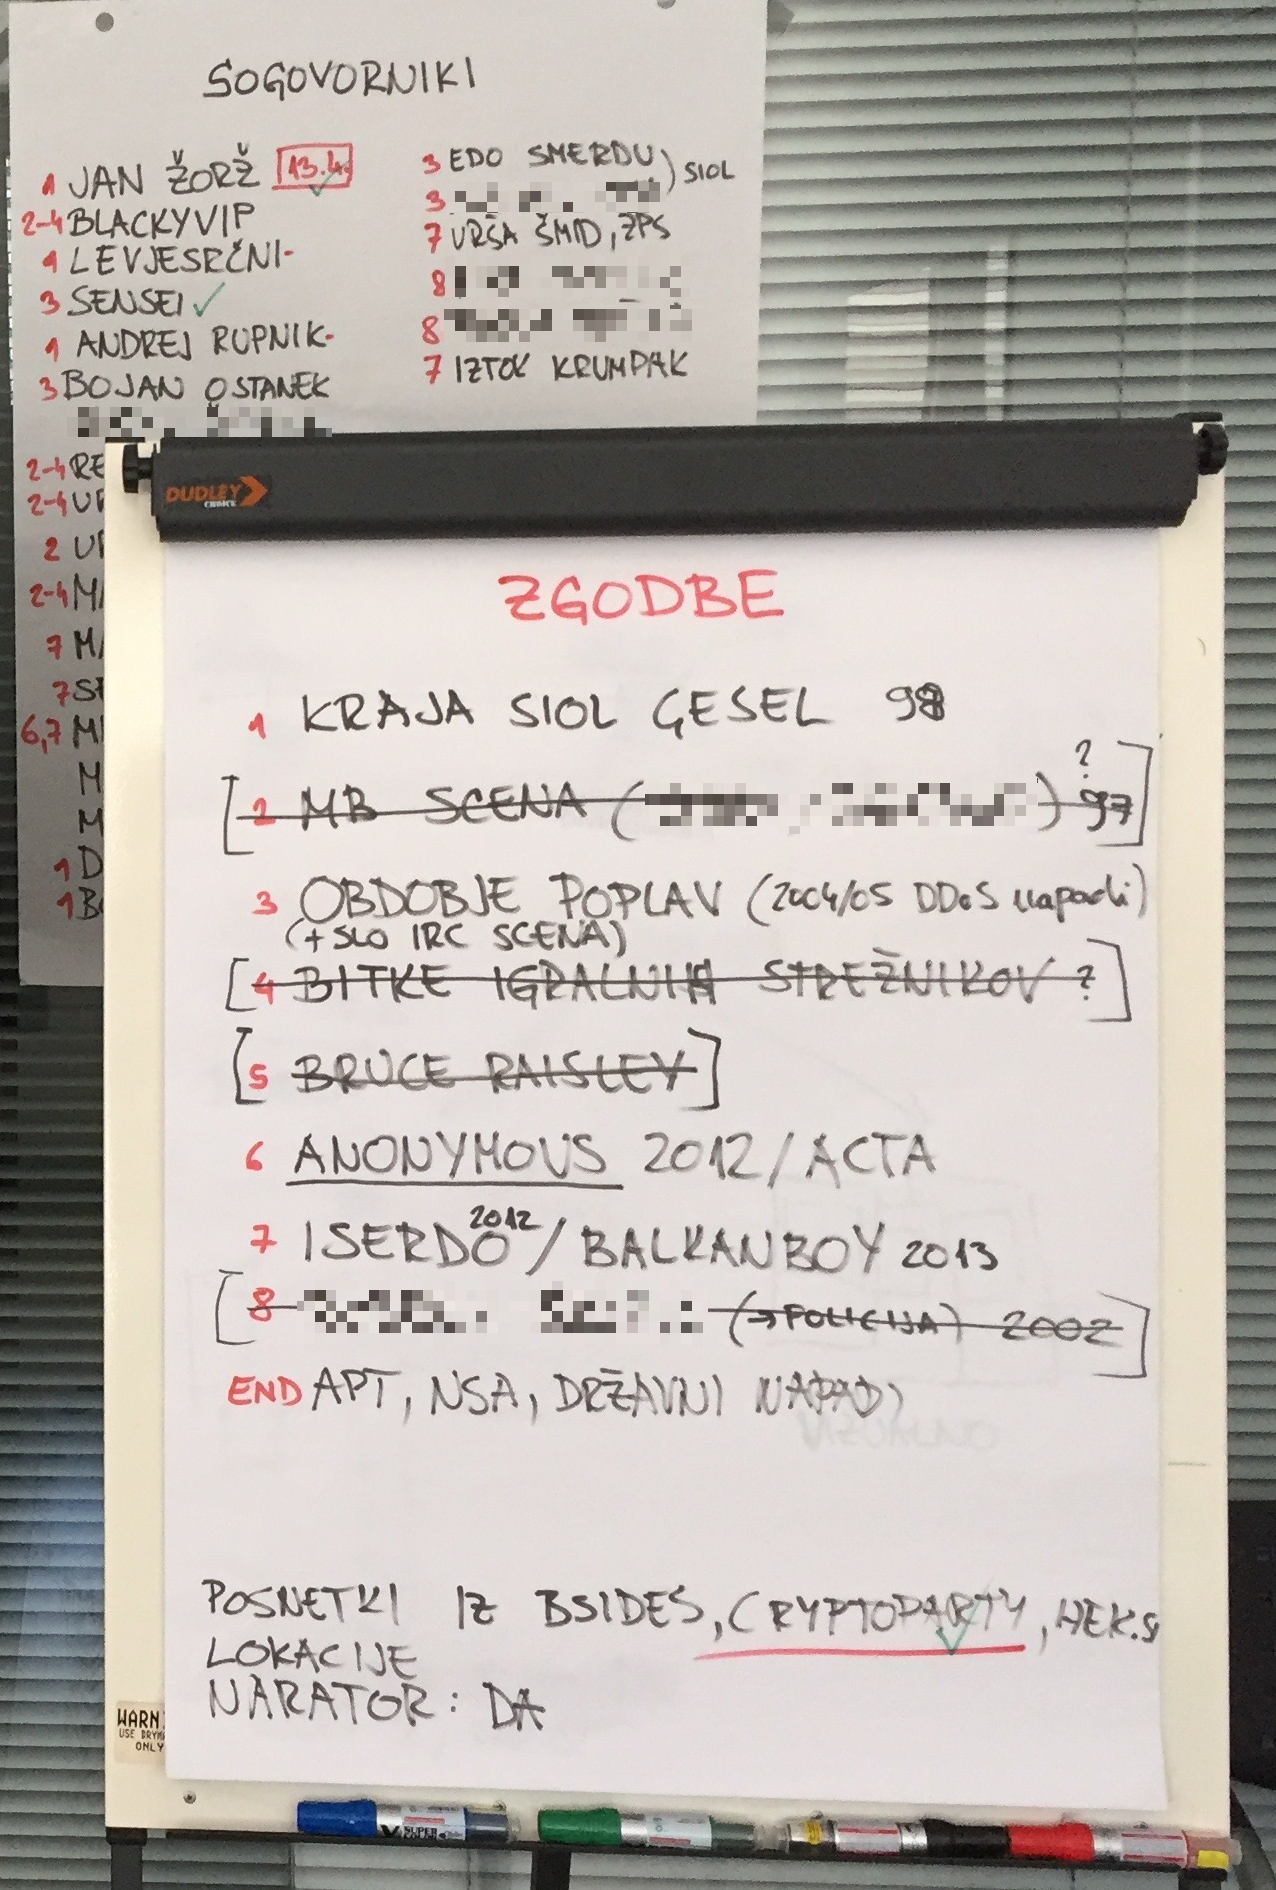 SOGOVORNIKI
1 JAN ŽORŽ 13.4.
2-4 BLACKYVIP
1 LEVJESRČNI-
3 SENSEI ✓
1 ANDREJ RUPNIK-
3 BOJAN OSTANEK
2-4 RE
2-4 UR
2 UR
2-4 MA
7 MA
7 SE
6,7 M
M
M
1 D
1 BO
3 EDO SMERDU ) SIOL
3
7 URŠA ŠMID, ZPS
8
8
7 IZTOK KRUMPAK
DUDLEY
CHOICE
ZGODBE
1 KRAJA SIOL GESEL 98
[2 MB SCENA ( / ) 97 ?]
3 OBDOBJE POPLAV (2004/05 DDoS napadi)
(+ SLO IRC SCENA)
[4 BITKE IGRALNIH STREŽNIKOV ?]
[5 BRUCE RAISLEY]
6 ANONYMOUS 2012/ACTA
7 ISERDO 2012 / BALKANBOY 2013
[8 (→ POLICIJA) 2002]
END APT, NSA, DRŽAVNI NAPADI
POSNETKI IZ BSIDES, CRYPTOPARTY, HEK.SI
LOKACIJE
NARATOR: DA
WARN
USE DRYM
ONLY
SUPER